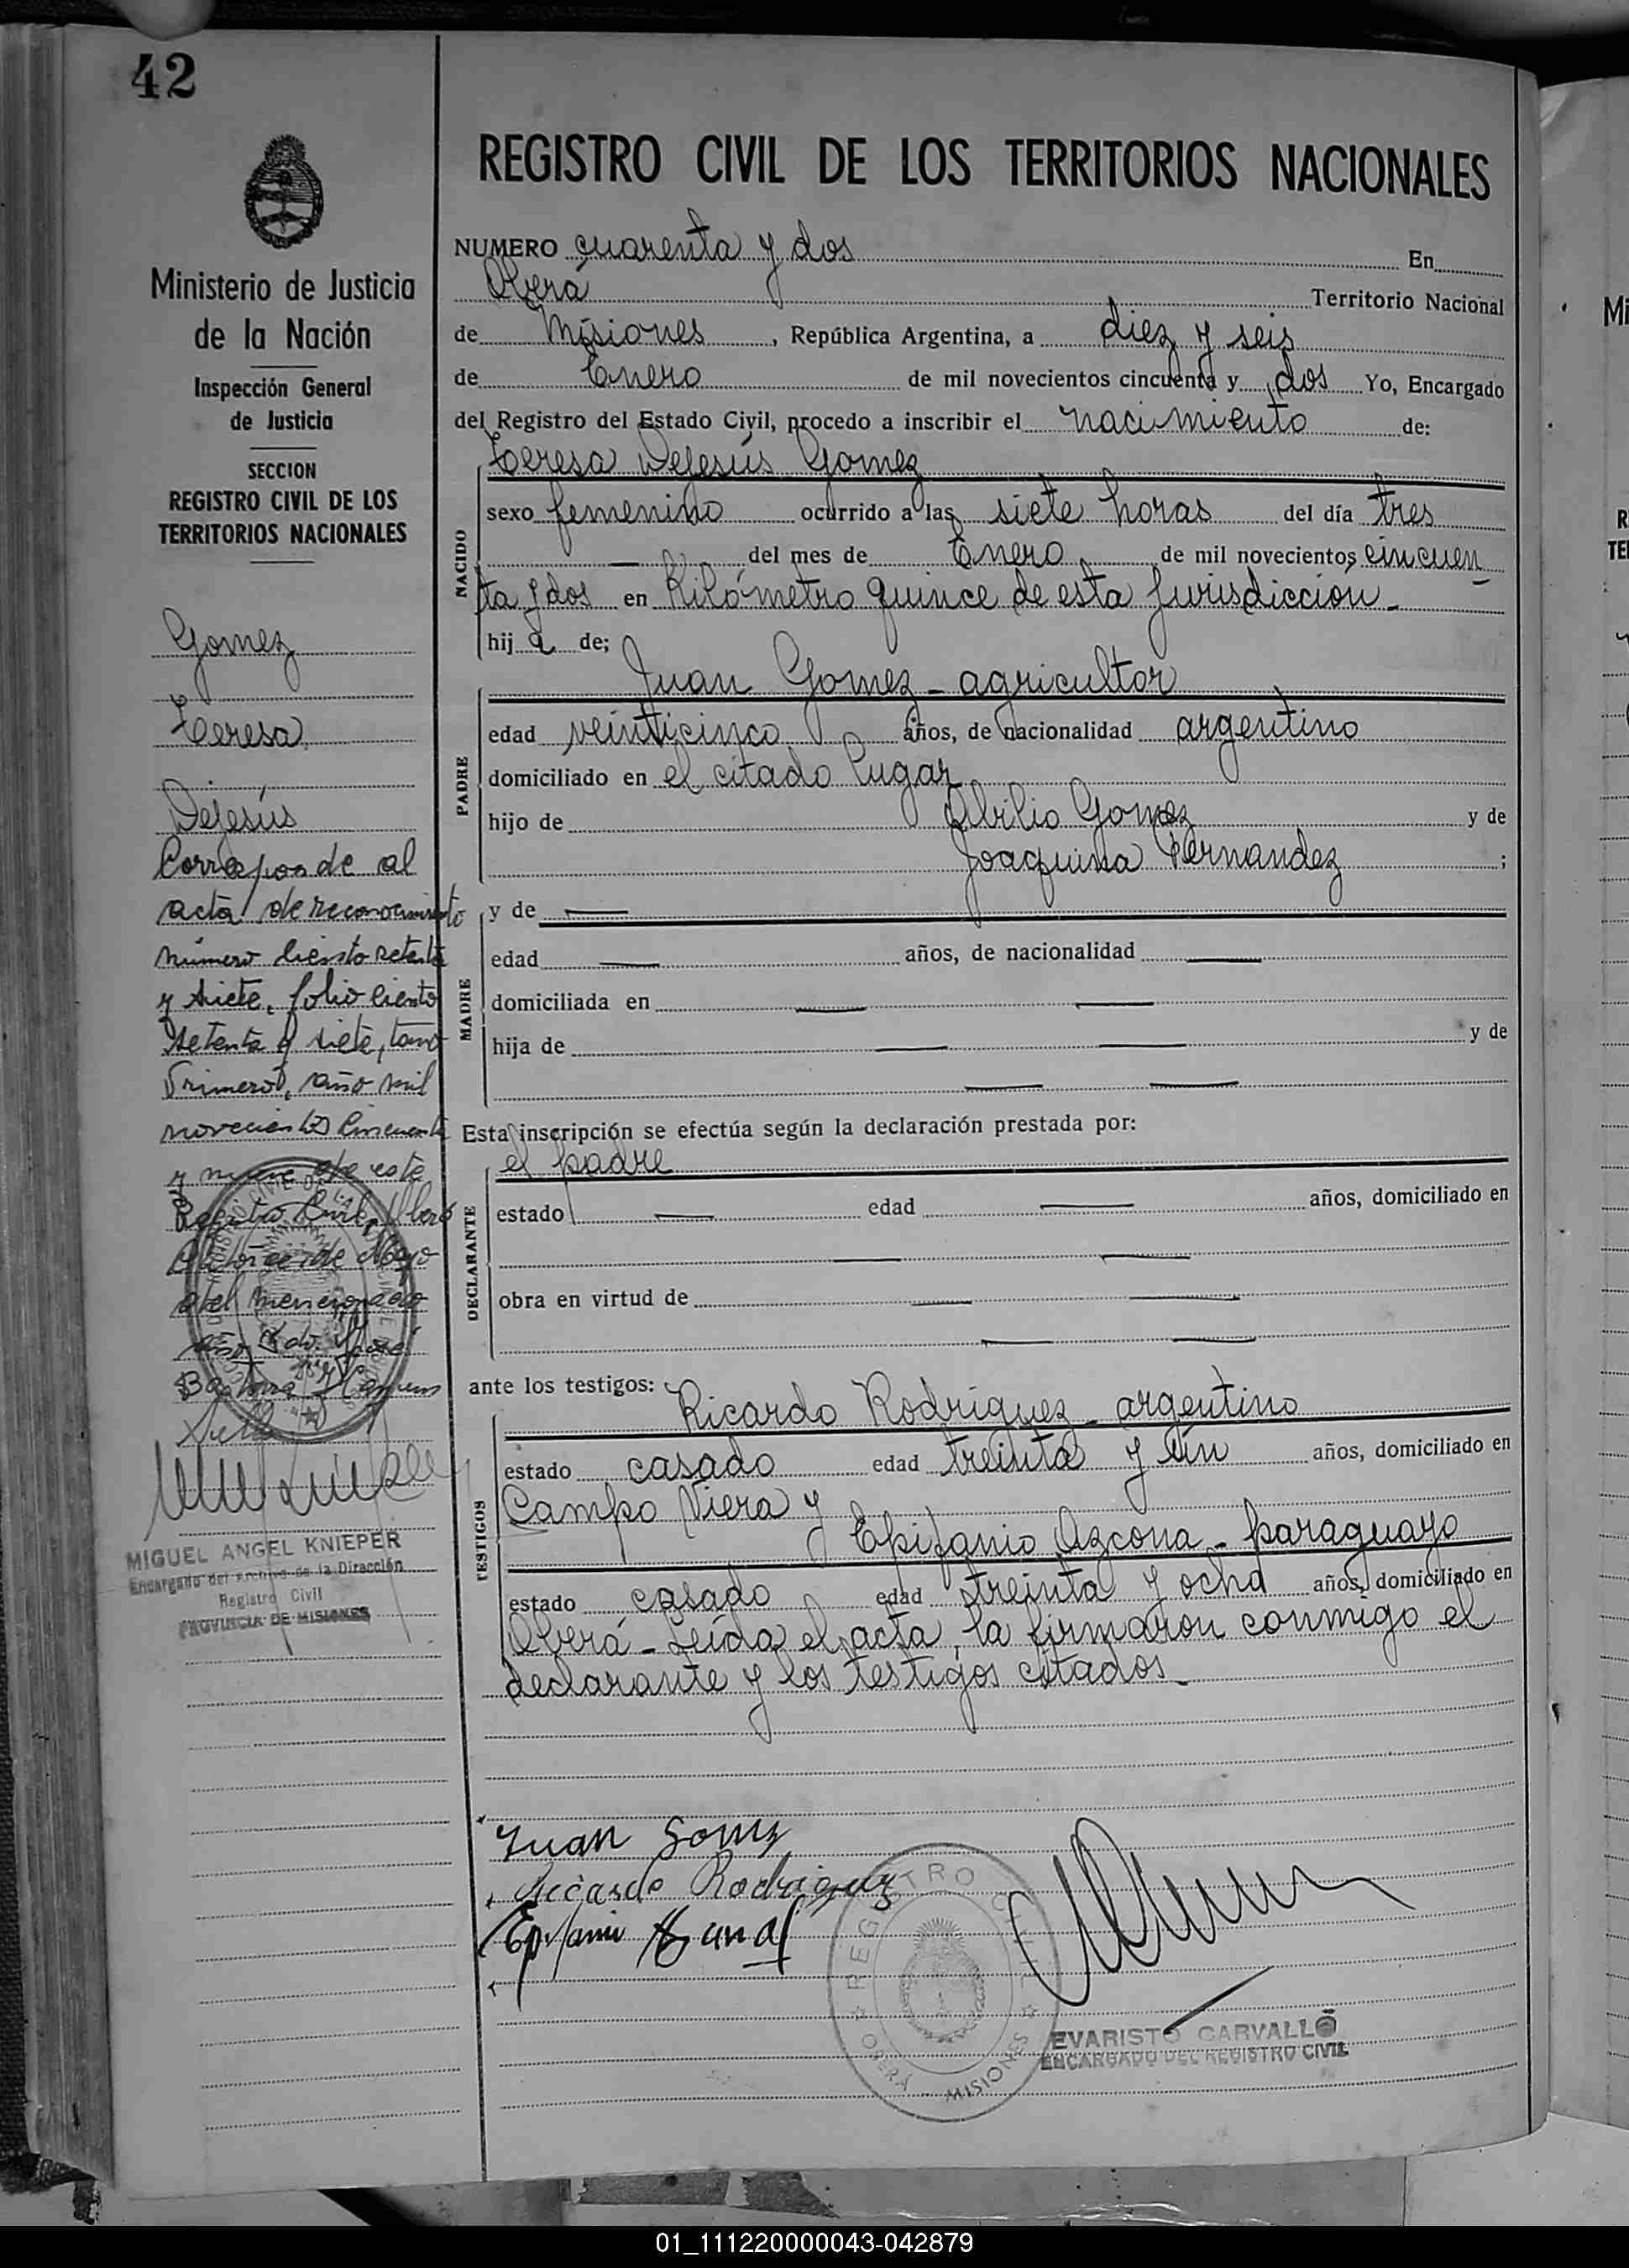 42
Ministerio de Justicia
de la Nación
Inspección General
de Justicia
SECCION
REGISTRO CIVIL DE LOS
TERRITORIOS NACIONALES
Gomez
Teresa
DeJesús
Corresponde al
acta de reconocimiento
número ciento setenta
y siete, folio ciento
setenta y siete, tomo
Primero, año mil
novecientos cincuenta
y nueve de este
Registro Civil,
de Mayo
del mencionado
año
MIGUEL ANGEL KNIEPER
Encargado del Archivo de la Dirección
Registro Civil
PROVINCIA DE MISIONES
REGISTRO CIVIL DE LOS TERRITORIOS NACIONALES
NUMERO cuarenta y dos En
Oberá Territorio Nacional
de Misiones, República Argentina, a diez y seis
de Enero de mil novecientos cincuenta y dos Yo, Encargado
del Registro del Estado Civil, procedo a inscribir el nacimiento de:
Teresa DeJesús Gomez
NACIDO
sexo femenino ocurrido a las siete horas del día tres
— del mes de Enero de mil novecientos cincuen
ta y dos en Kilómetro quince de esta Jurisdicción.-
hij a de;
Juan Gomez - agricultor
PADRE
edad veinticinco años, de nacionalidad argentino
domiciliado en el citado lugar
hijo de Abilio Gomez y de
Joaquina Fernandez ;
MADRE
y de —
edad — años, de nacionalidad —
domiciliada en — —
hija de — — y de
— —
Esta inscripción se efectúa según la declaración prestada por:
el padre
DECLARANTE
estado — edad — años, domiciliado en
— —
obra en virtud de — —
— —
ante los testigos:
Ricardo Rodriguez - argentino
TESTIGOS
estado casado edad treinta y ún años, domiciliado en
Campo Viera y
Epifanio Azcona - paraguayo
estado casado edad treinta y ocho años, domiciliado en
Oberá - Leída el acta, la firmaron conmigo el
declarante y los testigos citados.-
Juan Gomez
Ricardo Rodriguez
REGISTRO CIVIL
OBERA - MISIONES
EVARISTO CARVALLO
ENCARGADO DEL REGISTRO CIVIL
01_111220000043-042879